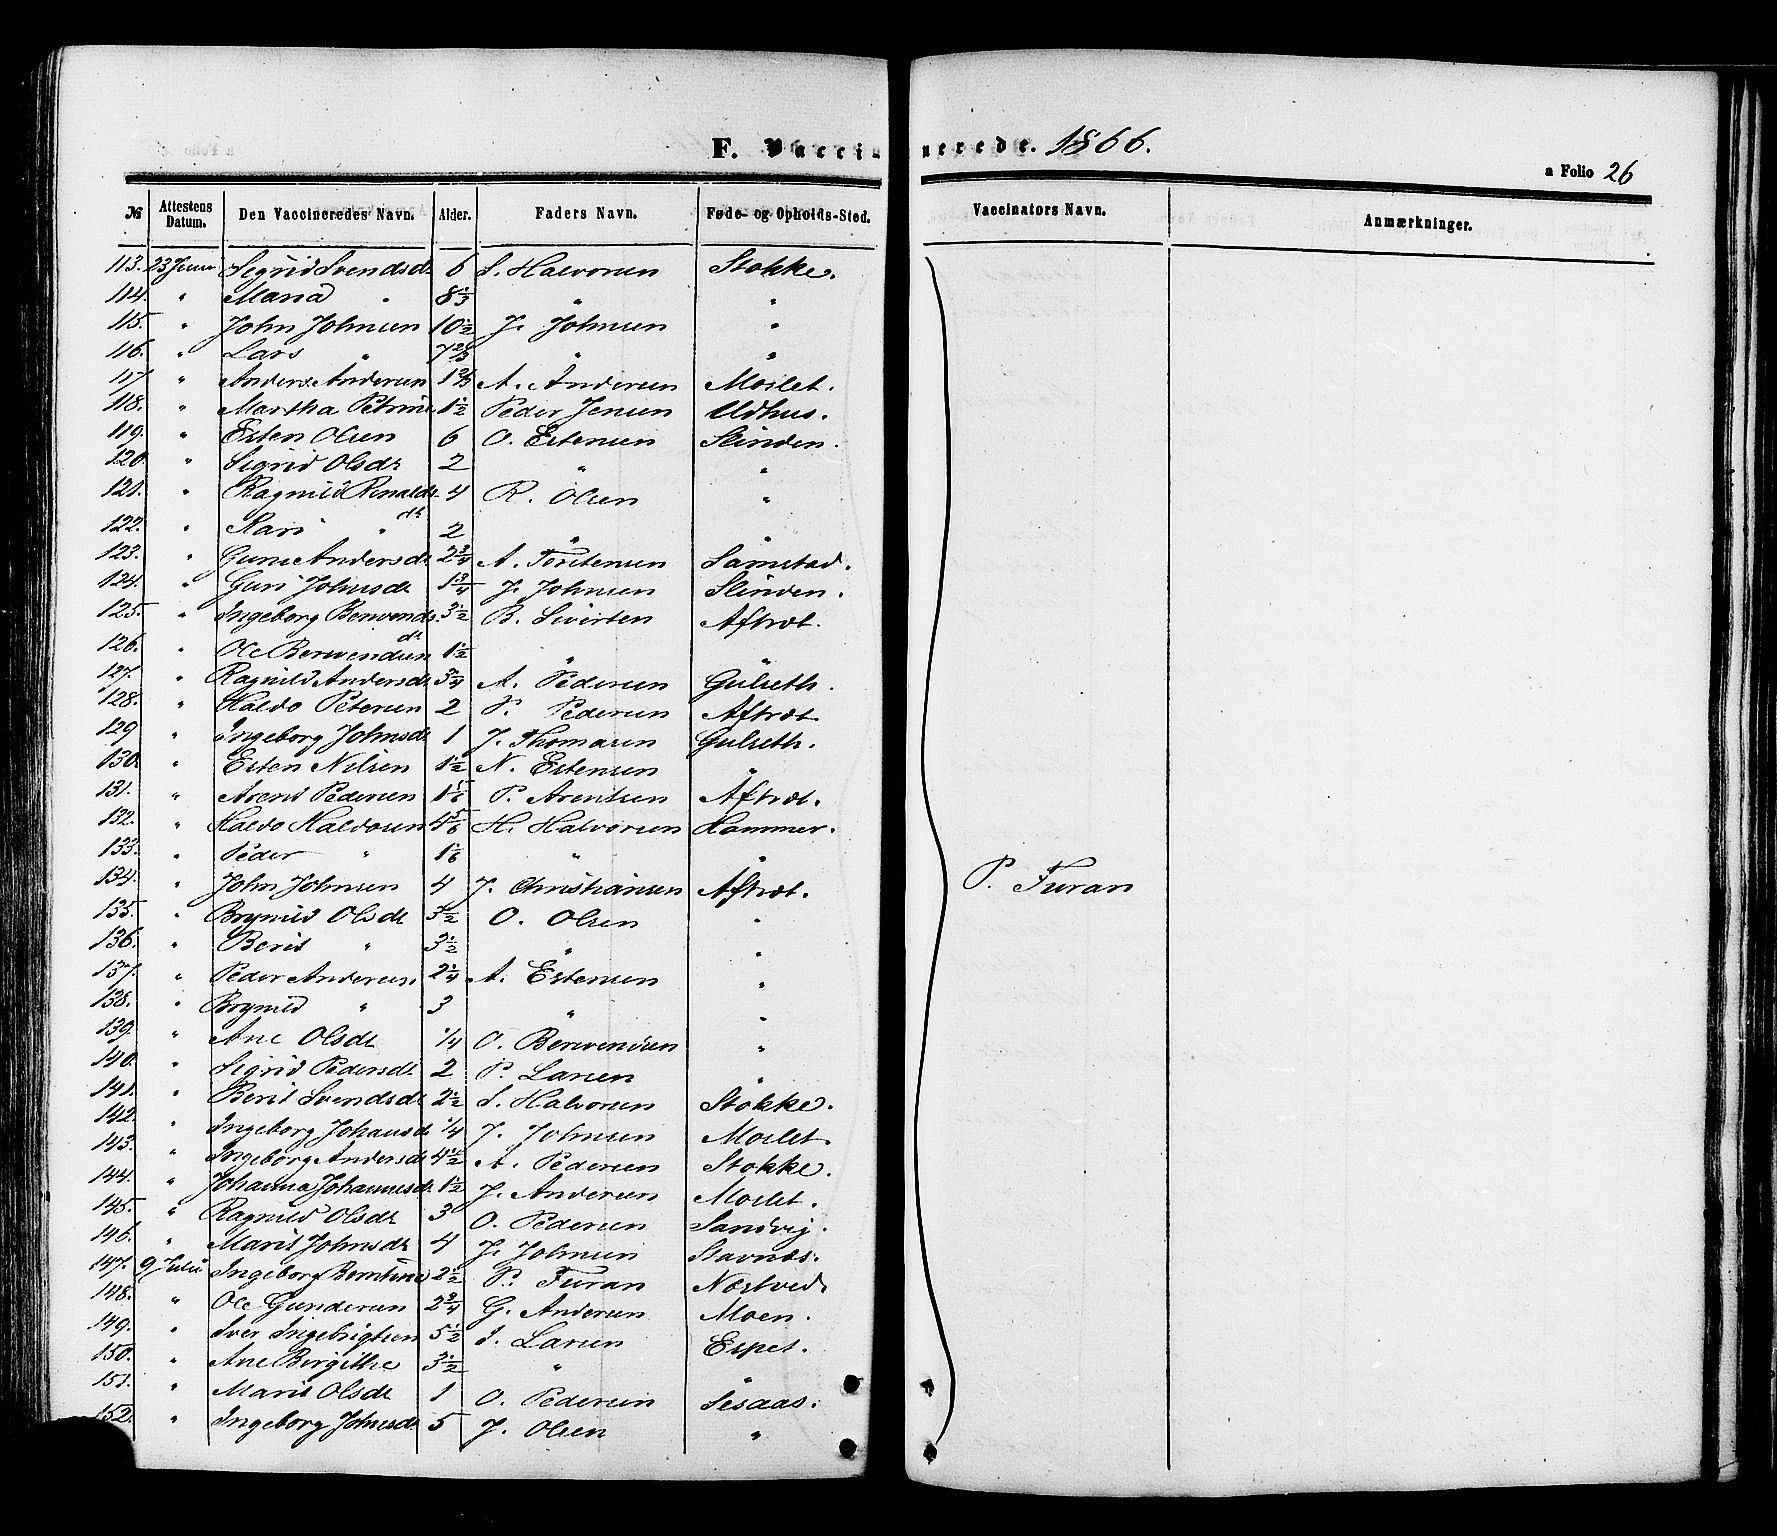 F. Vaccinerede. 1866.
a Folio 26
№ Attestens Datum. Den Vaccineredes Navn. Alder. Faders Navn. Føde- og Opholds-Sted. Vaccinators Navn. Anmærkninger.
113. 23 Juni Sigrid Svendsdt 6 S. Halvorsen Stokke.
114. " Maria " 8 1/3 " "
115. " John Johnsen 10 1/2 J. Johnsen "
116. " Lars " 7 2/3 " "
117. " Anders Andersen 1 2/3 A. Andersen Moslet.
118. " Martha Petrine 1 1/2 Peder Jensen Udhus.
119. " Esten Olsen 6 O. Estensen Slinden.
120. " Sigrid Olsdt 2 " "
121. " Ragnild Renaldsdt 4 R. Olsen "
122. " Kari " 2 "
123. " Gune Andersdt 2 3/4 A. Torstensen Samstad.
124. " Guri Johnsdt 1 3/4 J. Johnsen Slinden.
125. " Ingeborg Bervendsdt 3 1/2 B. Sivirten Aftret.
126. " Ole Bervendsen 1 1/2 " "
127. " Ragnild Andersdt 3 3/4 A. Pedersen Gulseth.
128. " Haldo Petersen 2 P. Pedersen Aftret
129 " Ingeborg Johnsdt 1 J. Thomasen Gulseth.
130. " Esten Nilsen 1 1/2 N. Estensen "
131. " Arent Pedersen 1 5/6 P. Arentsen Aftret.
132. " Haldo Haldosen 4 5/6 H. Halvorsen Hammer.
133. " Peder " 1 1/6 " "
134. " John Johnsen 4 J. Christiansen Aftret. P. Furan
135. " Brynild Olsdt 3 1/2 O. Olsen "
136. " Berit " 3 1/2 " "
137. " Peder Andersen 2 1/4 A. Estensen "
138. " Brynild " 3 " "
139. " Ane Olsdt 1/4 O. Bervendsen "
140. " Sigrid Pedersdt. 2 P. Larsen "
141. " Berit Svendsdt 2 1/2 S. Halvorsen Stokke.
142. " Ingeborg Johansdt 1/4 J. Johnsen Moslet.
143. " Ingeborg Andersdt 4 1/2 A. Pedersen Stokke.
144. " Johanna Johannesdt. 1 1/2 J. Andersen Moslet.
145. " Ragnild Olsdt 3 O. Pedersen Sandvig.
146. " Marit Johnsdt 4 J. Johnsen Stavnæs.
147. 9 Julii Ingeborg Berntine 2 1/2 P. Furan Næstved.
148. " Ole Gundersen 2 3/4 G. Andersen Moen.
149. " Iver Ingebrigtsen 5 1/2 I. Larsen Espet.
150. " Ane Birgithe 3 1/2 " "
151. " Marit Olsdt 1 O. Pedersen Sesaas.
152. " Ingeborg Johnsdt 5 J. Olsen "